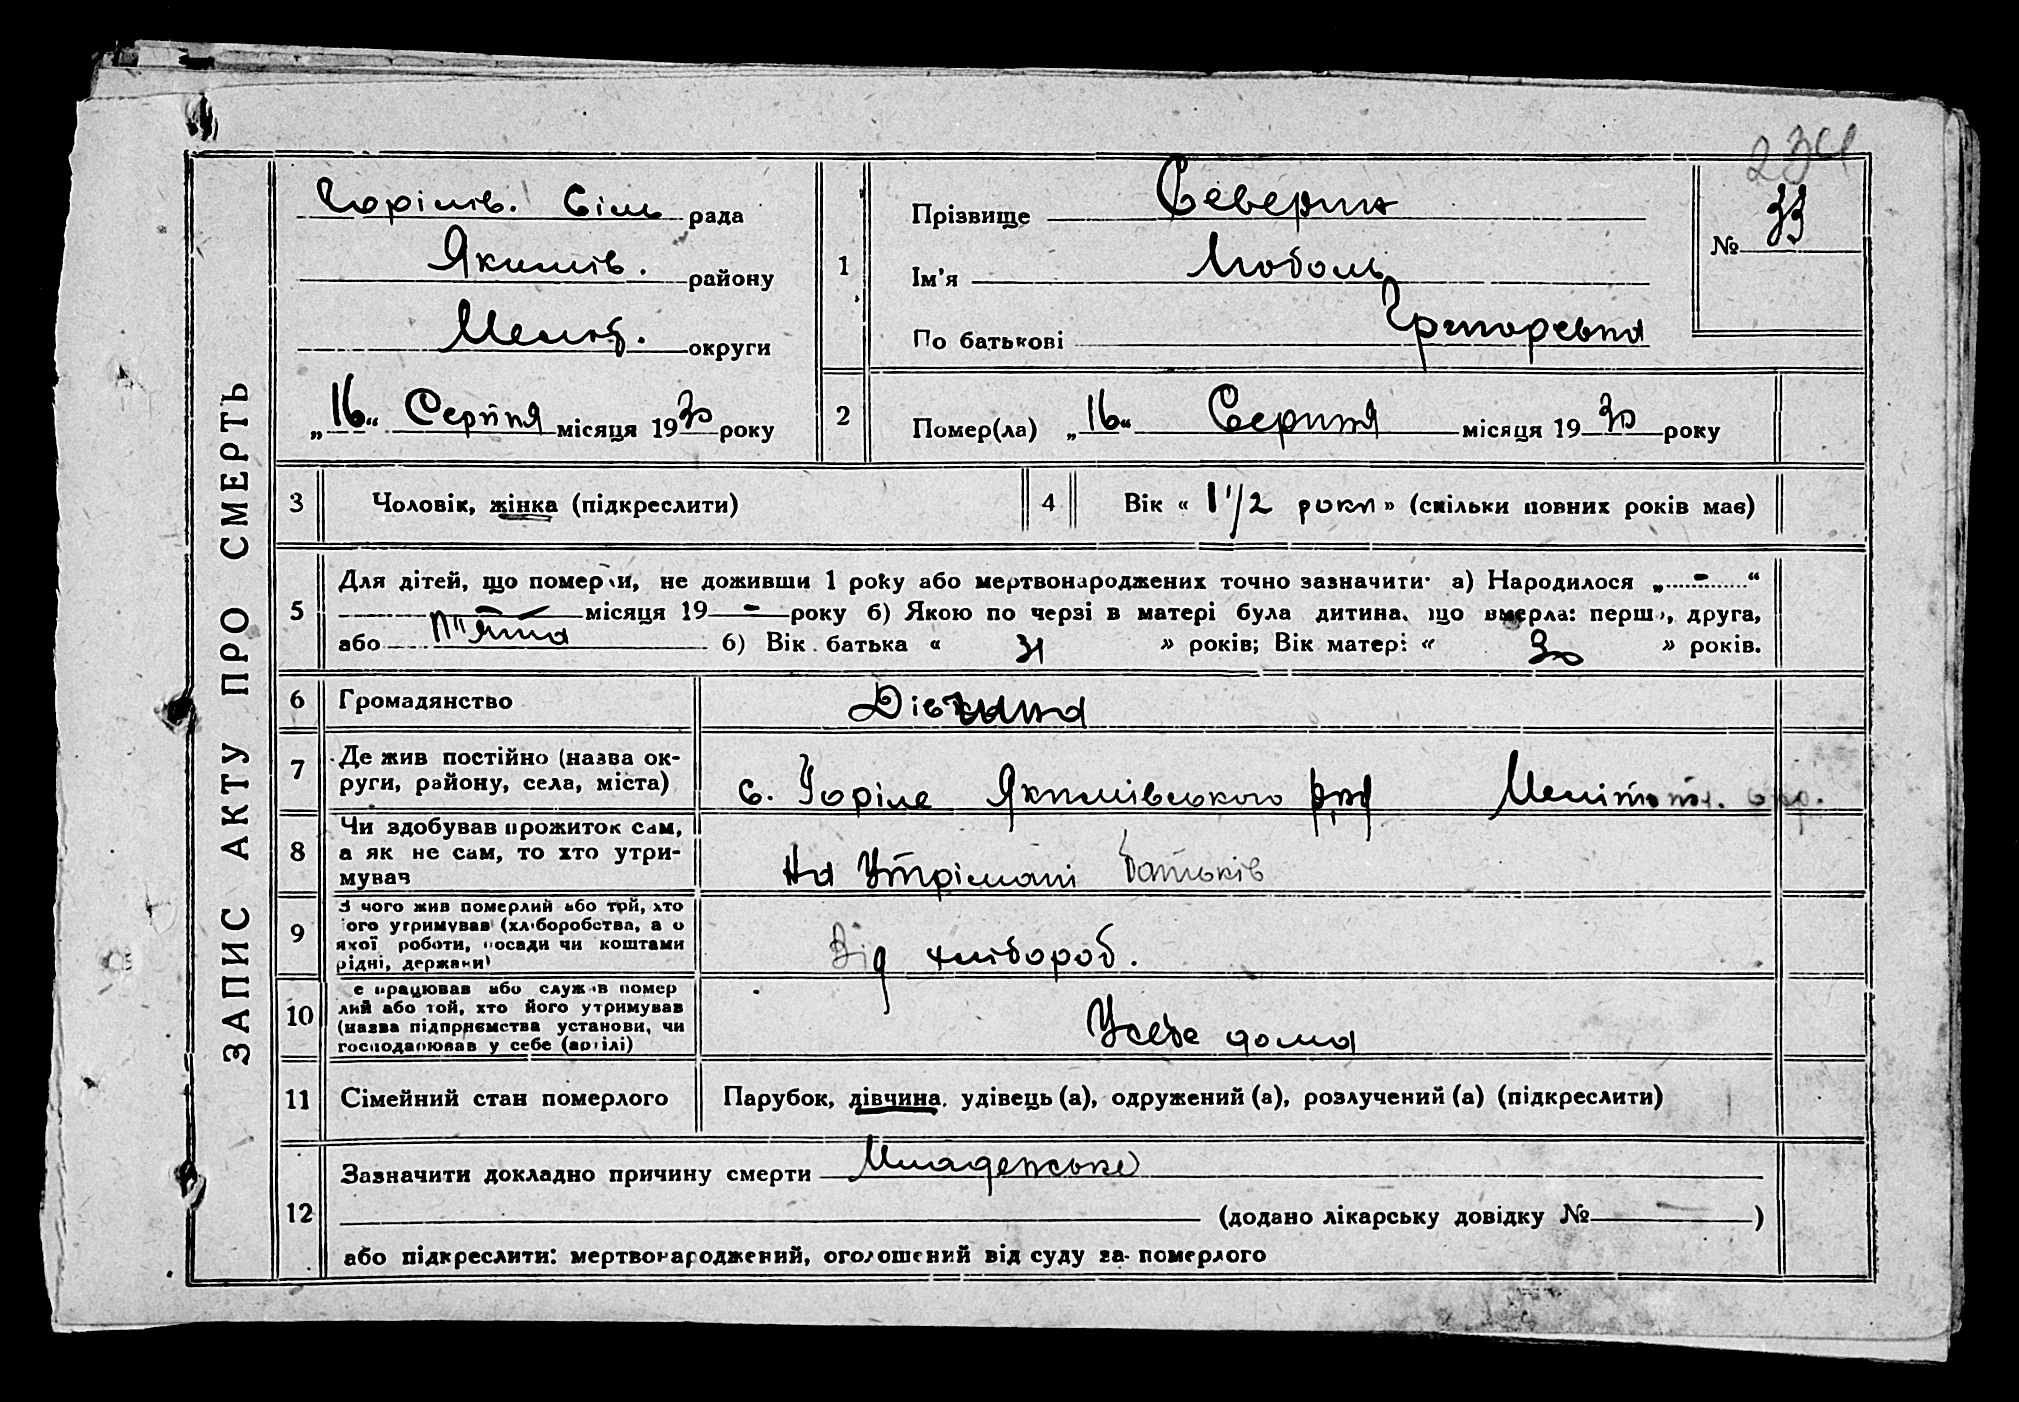 234
ЗАПИС АКТУ ПРО СМЕРТЬ
Горілів. Сіль рада
Якимів. району
Меліт. округи
„16“ Серпня місяця 1930 року
1
Прізвище Северин
Ім'я Любовь
По батькові Григоревна
№ 33
2
Помер(ла) „16“ Серпня місяця 1930 року
3 Чоловік, жінка (підкреслити)
4 Вік « 1 1/2 роки » (скільки повних років має)
5
Для дітей, що померли, не доживши 1 року або мертвонароджених точно зазначити: а) Народилося „ - “
місяця 19 - року б) Якою по черзі в матері була дитина, що вмерла: перша, друга,
або п"ята б) Вік батька « 31 » років; Вік матері « 30 » років.
6 Громадянство Дівчина
7 Де жив постійно (назва ок-
руги, району, села, міста)
с. Горіле Якимівського рну Мелітопол. окр.
8 Чи здобував прожиток сам,
а як не сам, то хто утри-
мував
На Утрімані батьків
9
З чого жив померлий або той, хто
його утримував (хліборобства, а о
якої роботи, посади чи коштами
рідні, держави)
Від хлібороб.
10
е працював або служив помер
лий або той, хто його утримував
(назва підприємства установи, чи
господарював у себе (артілі)
У себе дома
11 Сімейний стан померлого Парубок, дівчина, удівець (а), одружений (а), розлучений (а) (підкреслити)
12
Зазначити докладно причину смерти Младенське
(додано лікарську довідку № )
або підкреслити: мертвонароджений, оголошений від суду за померлого